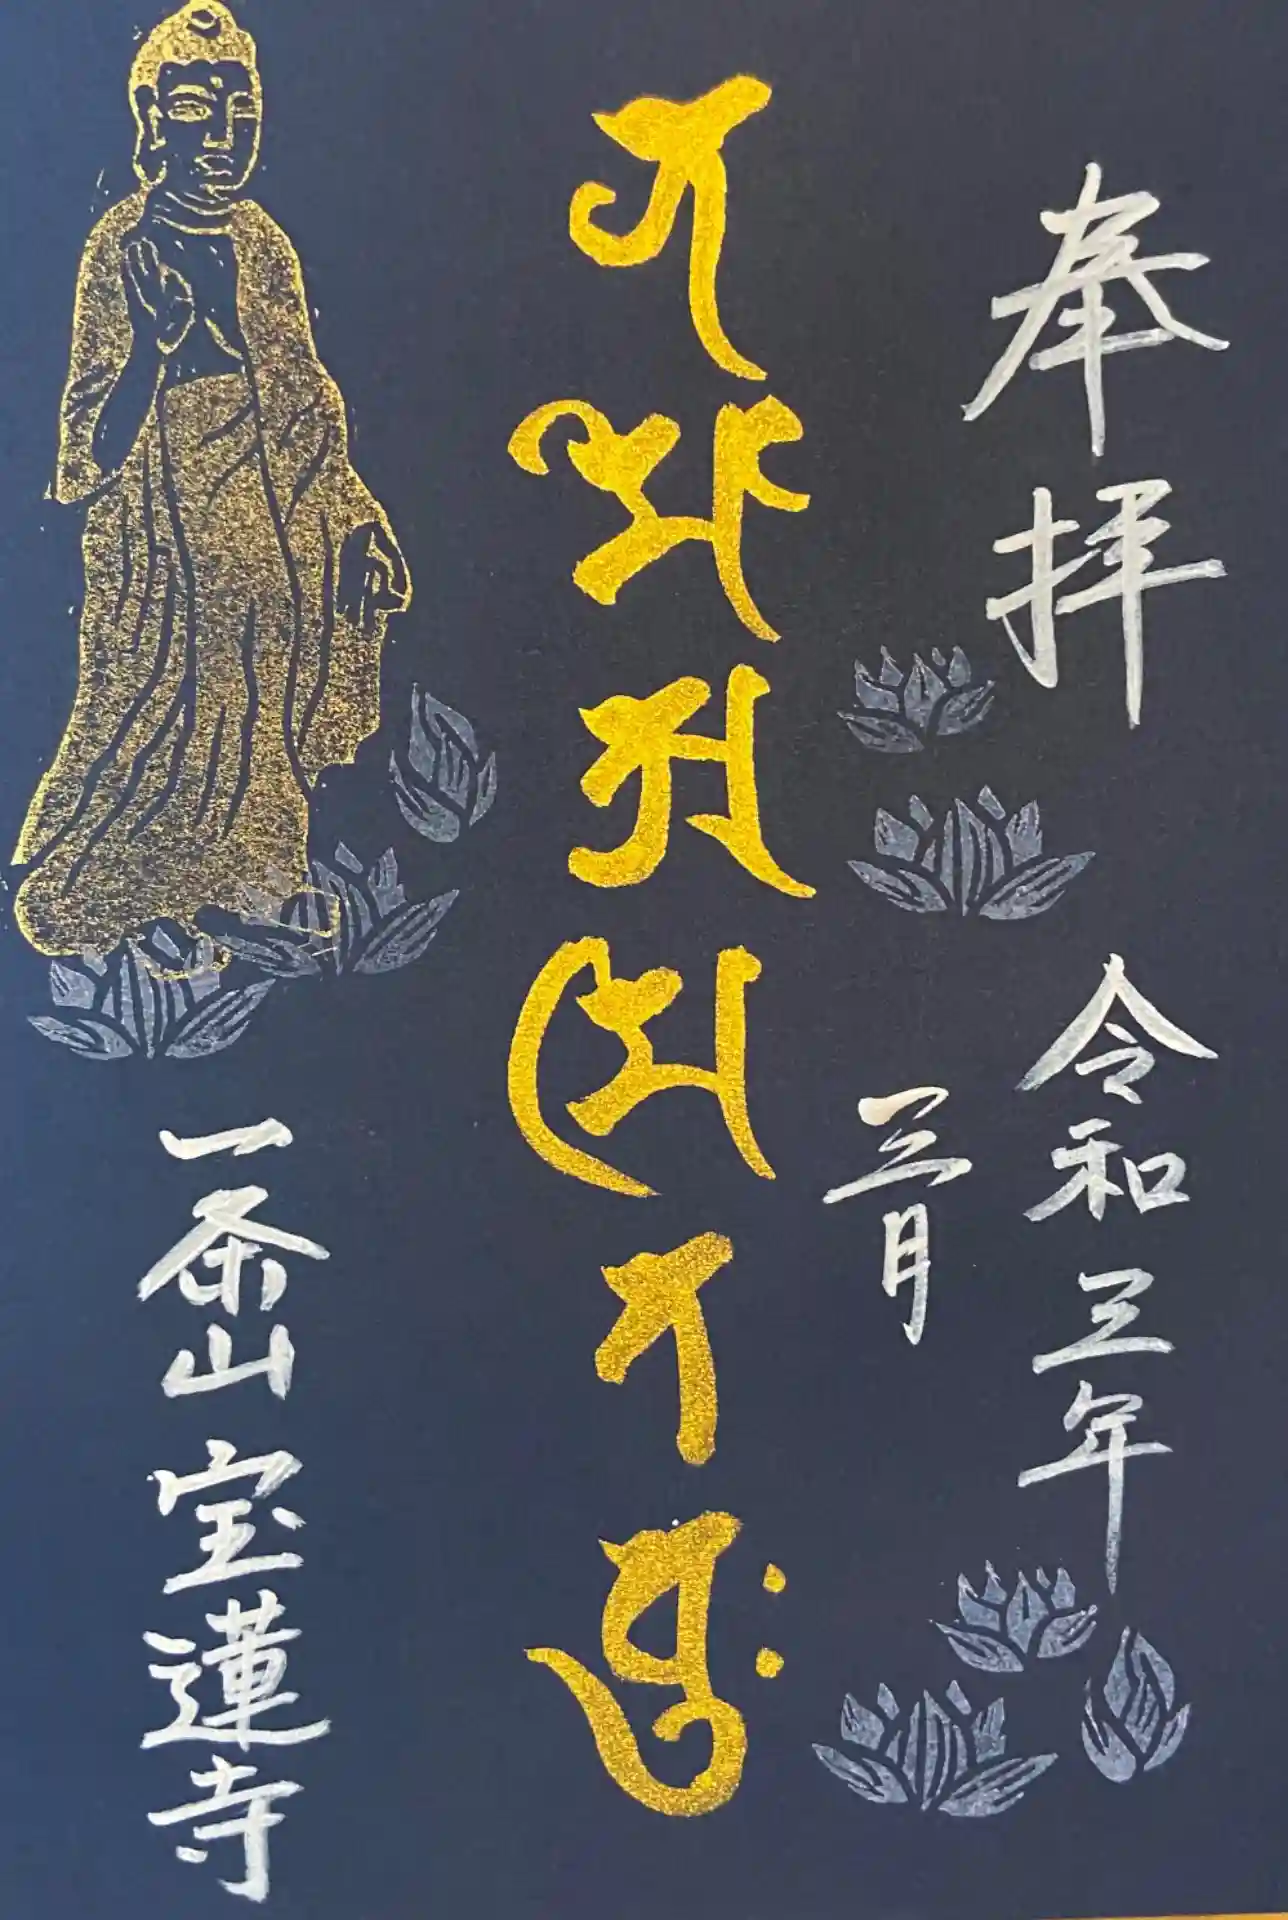 奉拝
令和三年
三月
𑖡𑖦𑖺𑖀𑖦𑖰𑖝𑖧𑖲𑖾
一条山 宝蓮寺